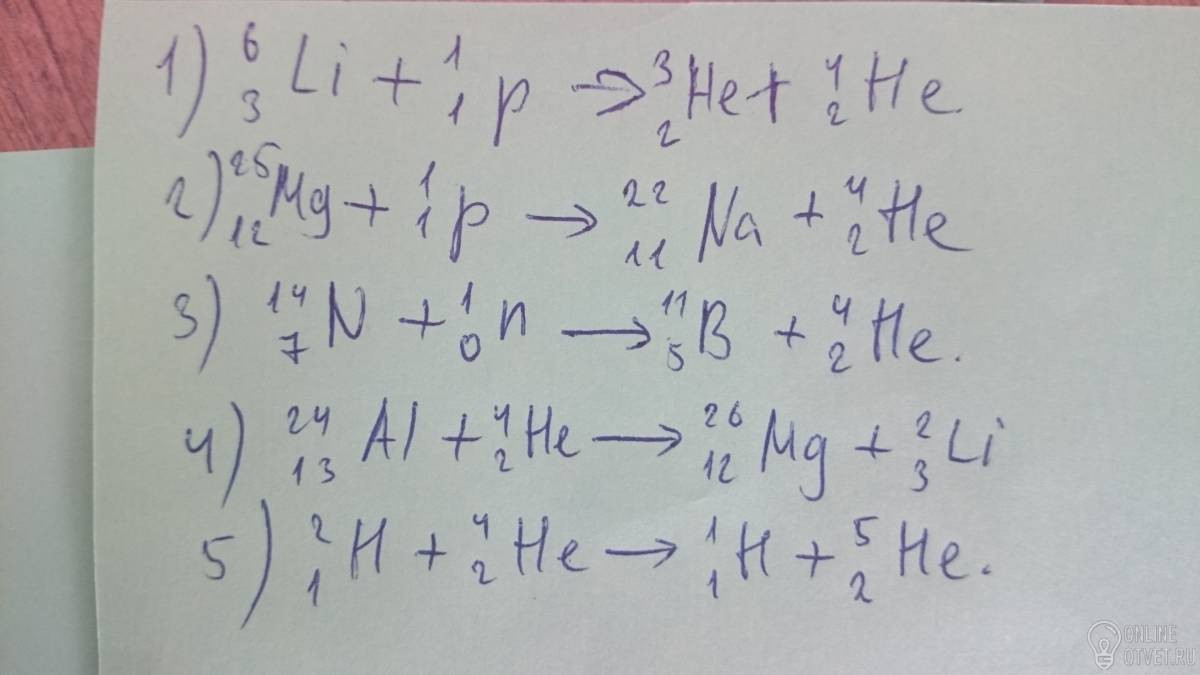 1) ⁶₃Li + ¹₁p → ³₂He + ⁴₂He
2) ²⁵₁₂Mg + ¹₁p → ²²₁₁Na + ⁴₂He
3) ¹⁴₇N + ¹₀n → ¹¹₅B + ⁴₂He.
4) ²⁴₁₃Al + ⁴₂He → ²⁶₁₂Mg + ²₃Li
5) ²₁H + ⁴₂He → ¹₁H + ⁵₂He.
ONLINE
OTVET.RU